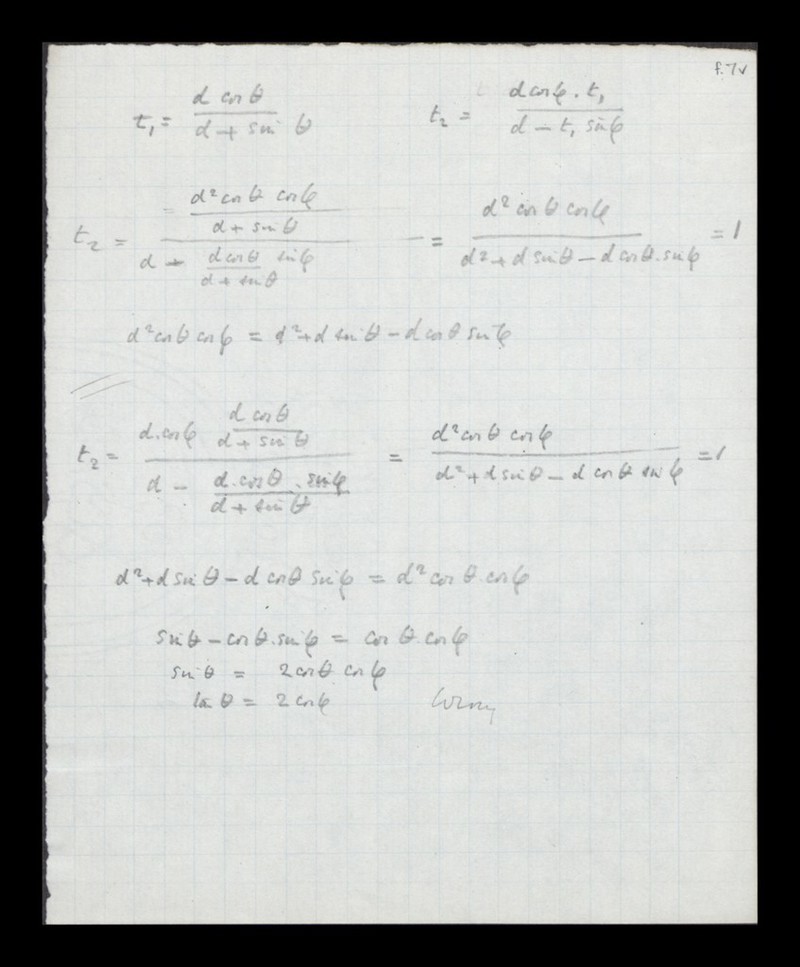 f.7v
t₁ = (d cos θ)/(d + sin θ)    t₂ = (d cos φ . t₁)/(d − t₁ sin φ)
t₂ = ((= d² cos θ cos φ)/(d + sin θ))/(d − (d cos θ)/(d + sin θ) sin φ) = (d² cos θ cos φ)/(d² + d sin θ − d cos θ . sin φ) = 1
d² cos θ cos φ = d² + d sin θ − d cos θ sin φ
t₂ = (d . cos φ (d cos θ)/(d + sin θ))/(d − (d . cos θ . sin φ)/(d + sin θ)) = (d² cos θ cos φ)/(d² + d sin θ − d cos θ sin φ) = 1
d² + d sin θ − d cos θ sin φ = d² cos θ . cos φ
sin θ − cos θ . sin φ = cos θ . cos φ
sin θ = 2 cos θ cos φ
tan θ = 2 cos φ    Wrong